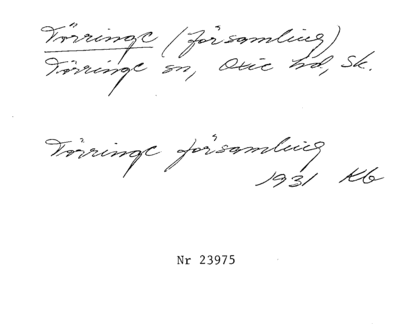 Törringe (församling)
Törringe sn, Oxie hd, Sk.
Törringe församling
1931 Kb
Nr 23975